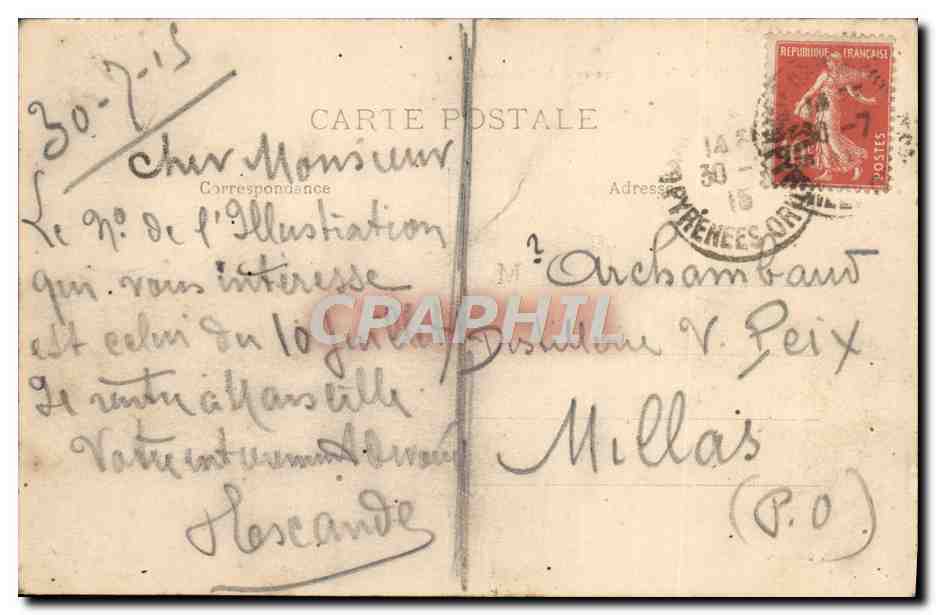 30-7-15
CARTE POSTALE
Correspondance
Adresse
Cher Monsieur
Le No de l'Illustration
qui vous intéresse
est celui du 10 Juillet
Je rentre à Marseille
Votre entièrement dévoué
Hescande
REPUBLIQUE FRANÇAISE
POSTES
14
30 - 7
15
PYRENEES-OR
M
Archambaud
Distillerie V. Peix
Millas
(P.O)
CPAPHIL